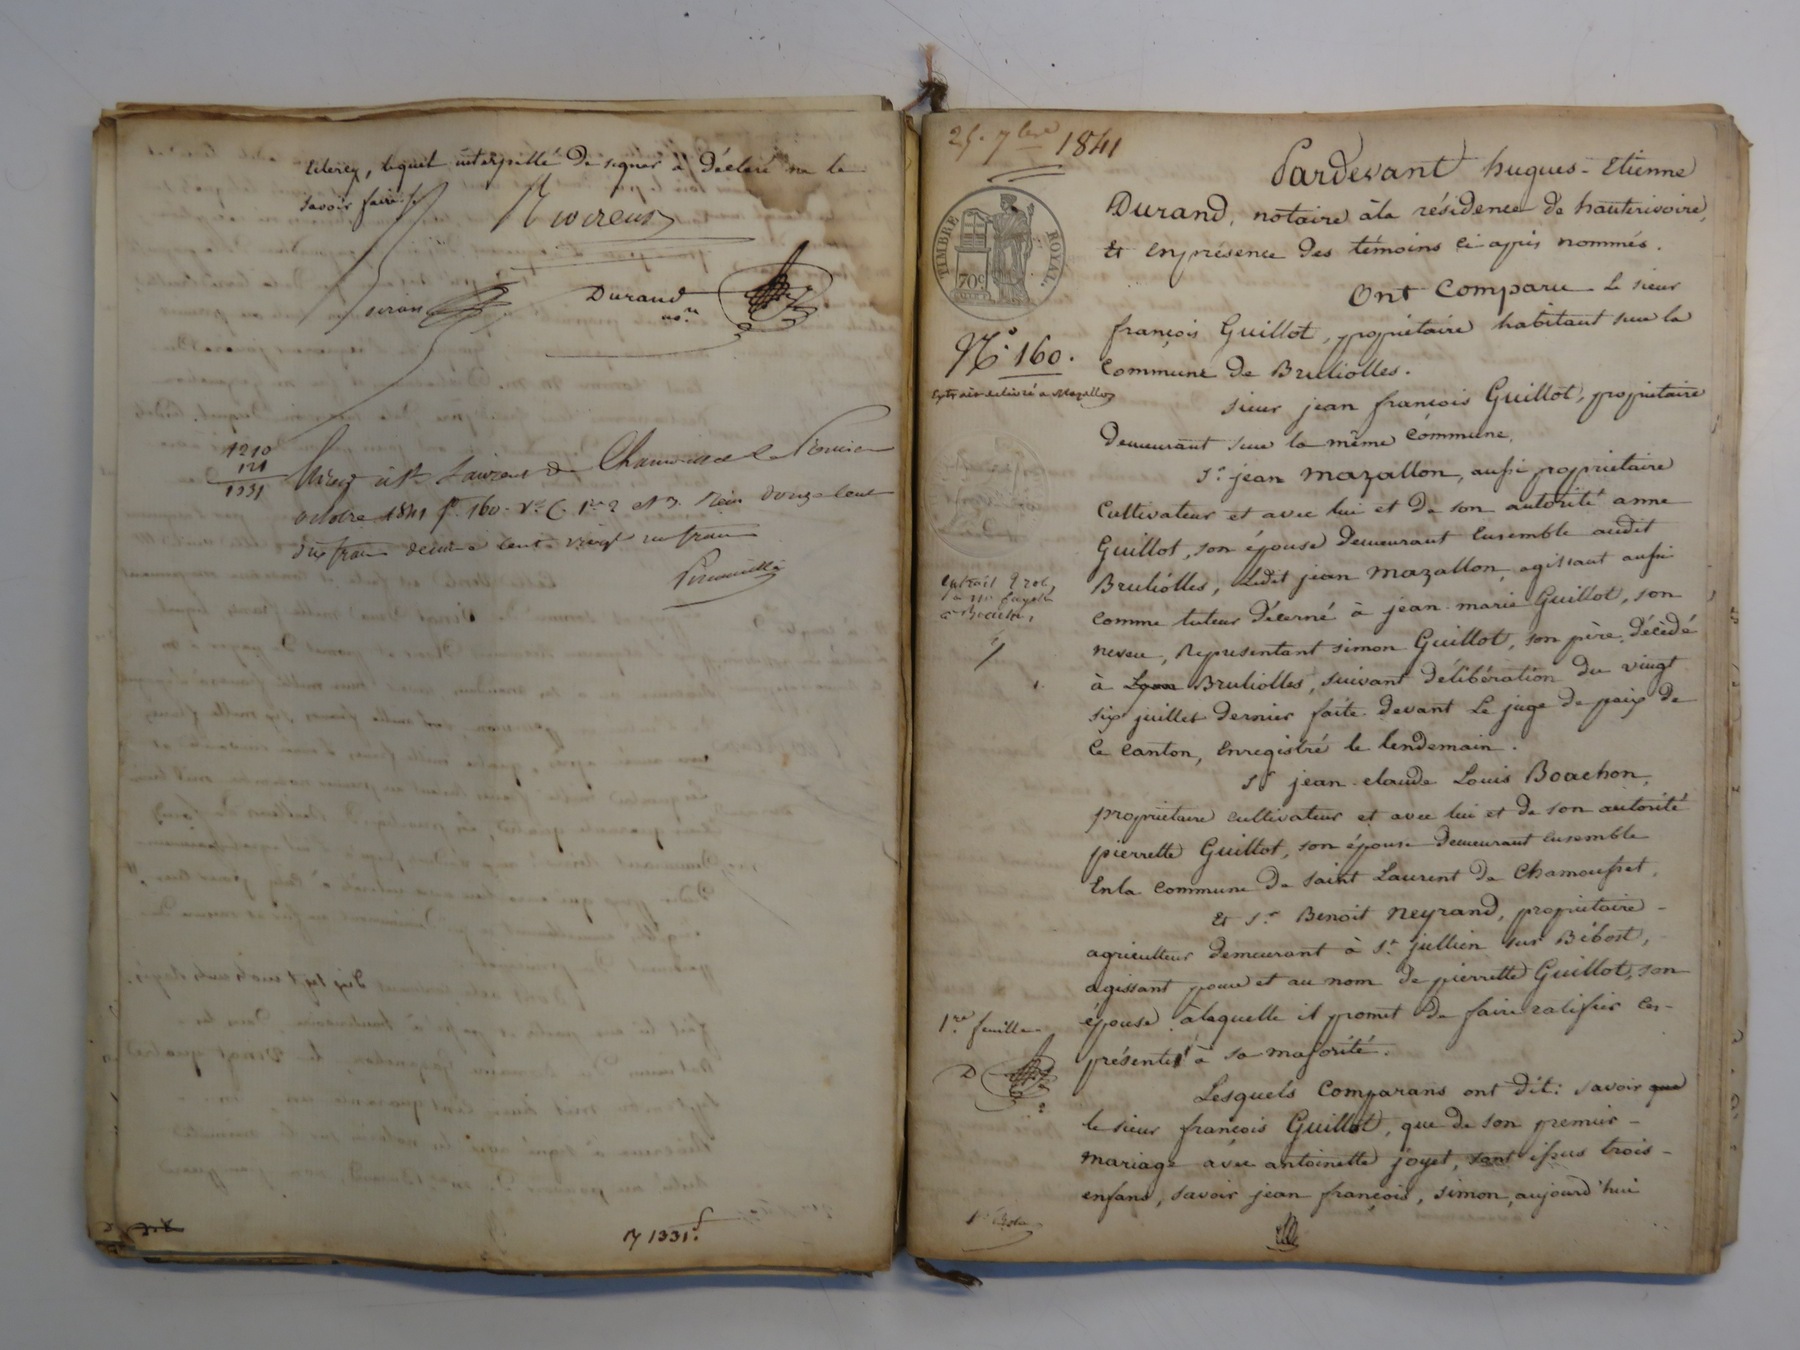 Clercy, lequel interpellé de signer à déclaré ne le
savoir faire /.
Riviereux
Siran
Durand
no.re
1210
121
1331
Enreg à St Laurent de Chamousset le Premier
octobre 1841 fo 160. Vo C. 1re 2 et 3. Reçu douze cent
dix francs decime cent vingt un francs
17 1331 f
25. 7bre 1841
TIMBRE ROYAL
70c
No. 160.
Extrait délivré a Mazallon
extrait
1re feuille
D
Pardevant hugues-Etienne
Durand, notaire à la résidence de hauterivoire,
Et en présence des témoins ci après nommés.
Ont Comparu Le sieur
françois Guillot, propriétaire habitant sur la
Commune de Brullioles.
Sieur jean françois Guillot, propriétaire
demeurant sur la même Commune.
Sr. jean Mazallon, aussi propriétaire
Cultivateur et avec lui et de son autorité anne
Guillot, son épouse demeurant Ensemble audit
Brullioles, Ledit jean Mazallon, agissant aussi
comme tuteur décerné à jean marie Guillot, son
neveu, Représentant simon Guillot, son père, décédé
à Lyon Brullioles, suivant délibération du vingt
six juillet dernier faite devant Le juge de paix de
Ce Canton, Enregistré le lendemain.
Sr jean claude Louis Boachon,
propriétaire cultivateur et avec lui et de son autorité
pierrette Guillot, son épouse demeurant ensemble
En la commune de saint Laurent de Chamousset.
Et Sr. Benoit Neyrand, propriétaire -
agriculteur demeurant à St. jullien sur Bibost,
agissant pour et au nom de pierrette Guillot, son
épouse à laquelle il promet de faire ratifier ces-
présentes à sa majorité.
Lesquels Comparans ont dit: savoir que
le sieur françois Guillot, que de son premier -
mariage avec antoinette joyet, sont issus trois -
enfans, savoir jean françois, simon, aujourd'hui